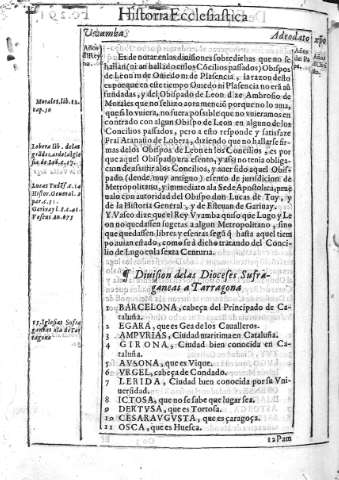 Historia Ecclesiastica
Vvamba
Adeodato
Es de notar en las divisiones sobredichas que no se
hallan (ni an hallado en los Cōcilios passados) Obispos
de Leon ni de Oviedo ni de Plasencia, la razon desto
es porque en este tiempo Oviedo ni Plasencia no erā aū
fundadas, y del Obispado de Leon dize Ambrosio de
Morales que no se hizo aora mencion porque no lo avia,
que si lo vuiera, no fuera possible que no vuieramos en
contrado con algun Obispo de Leon en alguno de los
Concilios passados, pero a esto responde y satisfaze
Frai Atanasio de Lobera, diziendo que no hallarse fir
mas de los Obispos de Leon en los Concilios, es por
que aquel Obispado era esento, y assi no tenia obliga-
cion de assistir a los Concilios, y aver sido aquel Obis-
pado (desde muy antiguo) esento de jurisdicion de
Metropolitano, y immediato a la Sede Apostolica, prue
valo con autoridad del Obispo don Lucas de Tuy, y
de la Historia General, y de Estevan de Garivay.
Y Vasco dize que el Rey Vvamba quiso que Lugo y Le
on no quedassen sugetas a algun Metropolitano, sino
que quedassen libres y esentas segū q̄ hasta aquel tiem
po avian estado, como se a dicho tratando del Conci-
lio de Lugo en la sexta Centuria.
Morales, lib. 12.
cap. 50
Lobera lib. de las
grādezas de la Igle
sia de Leō, c. 17.
Lucas Tudēs. e. 24
Histor. General. 2
par. c. 51.
Garivay l. 8. c. 41.
Vaseus aō. 675
¶ Division de las Dioceses Sufra-
ganeas a Tarragona
15. Iglesias Sufra
ganeas a la de Ta
rragona
1 BARCELONA, cabeça del Principado de Ca-
taluña.
2 EGARA, que es Gea de los Cavalleros.
3 AMPVRIAS, Ciudad maritima en Cataluña.
4 GIRONA, Ciudad bien conocida en Ca-
taluña.
5 AVSONA, que es Vique.
6 VRGEL, cabeça de Condado.
7 LERIDA, Ciudad bien conocida por su Vni-
versidad.
8 ICTOSA, que no se sabe que lugar sea.
9 DERTVSA, que es Tortosa.
10 CESARAVGVSTA, que es çaragoça.
11 OSCA, que es Huesca.
12 Pam